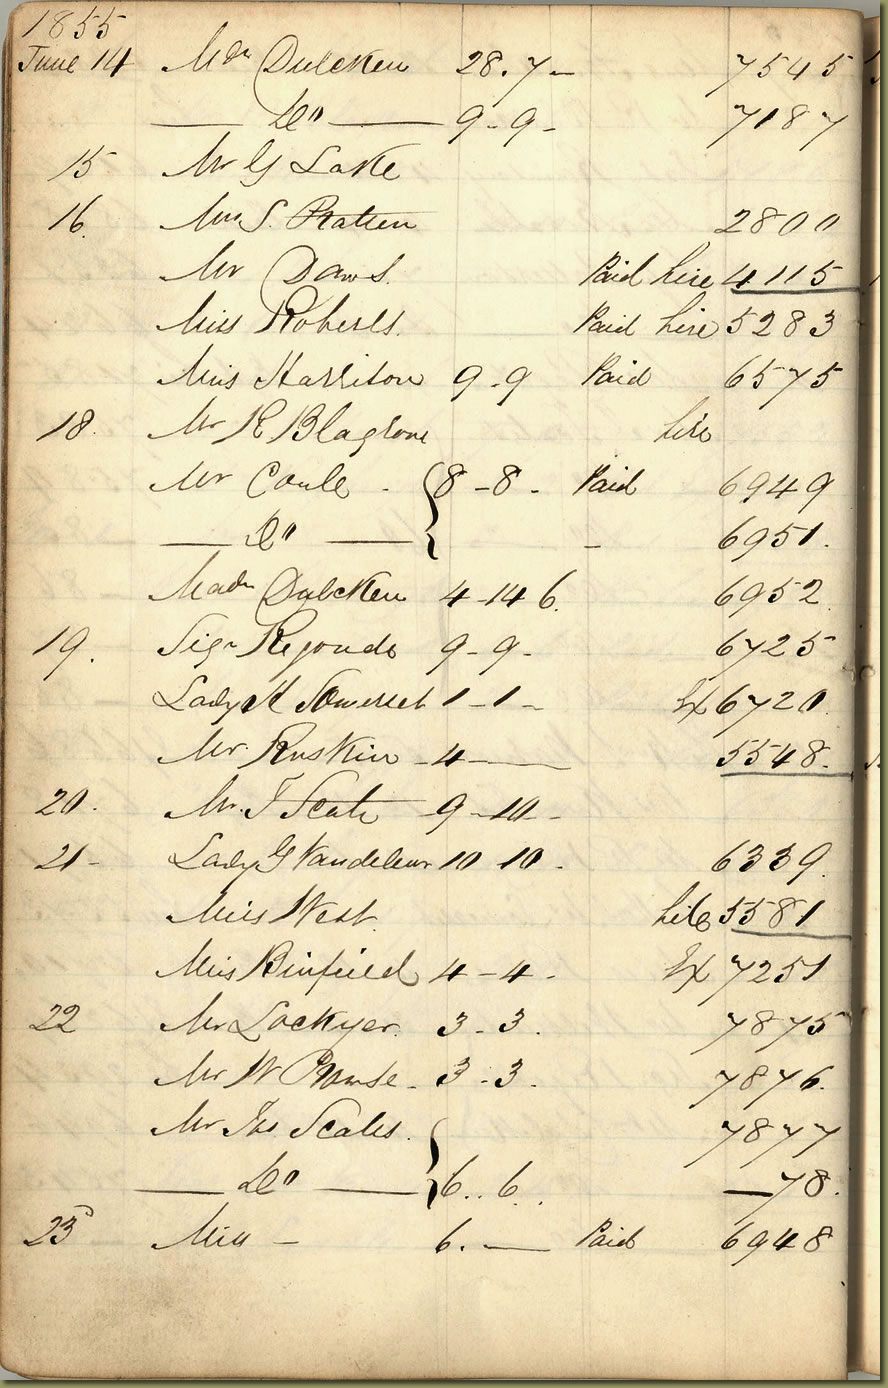 1855
June 14 Mdm Dulcken 28. 7 - 7545
— Do — 9 - 9 - 7187
15 Mr G Lake
16. Mrs S. Ratten 2800
Mr Daws. Paid hire 4115
Miss Roberts. Paid hire 5283
Miss Harrison 9 - 9 Paid 6575
18. Mr H Blagrove hire
Mr Coule - 8 - 8 - Paid 6949
— Do — - 6951.
Madm Dulcken 4 - 14 6. 6952.
19. Sigr Regondi 9 - 9 - 6725
Lady H Somerset 1 - 1 - Ex 6720
Mr. Ruskin - 4 — 5548.
20. Mr. T Scate 9 - 10 -
21 - Lady G Vandeleur 10 10 - 6339.
Miss West. hire 5581
Miss Binfield 4 - 4 - Ex 7251
22 Mr Lockyer. 3 - 3. 7875
Mr W Prowse - 3 - 3. 7876.
Mr Jas Scates. 7877
— Do — 6.. 6. — 78.
23 Miss - 6. — Paid 6948